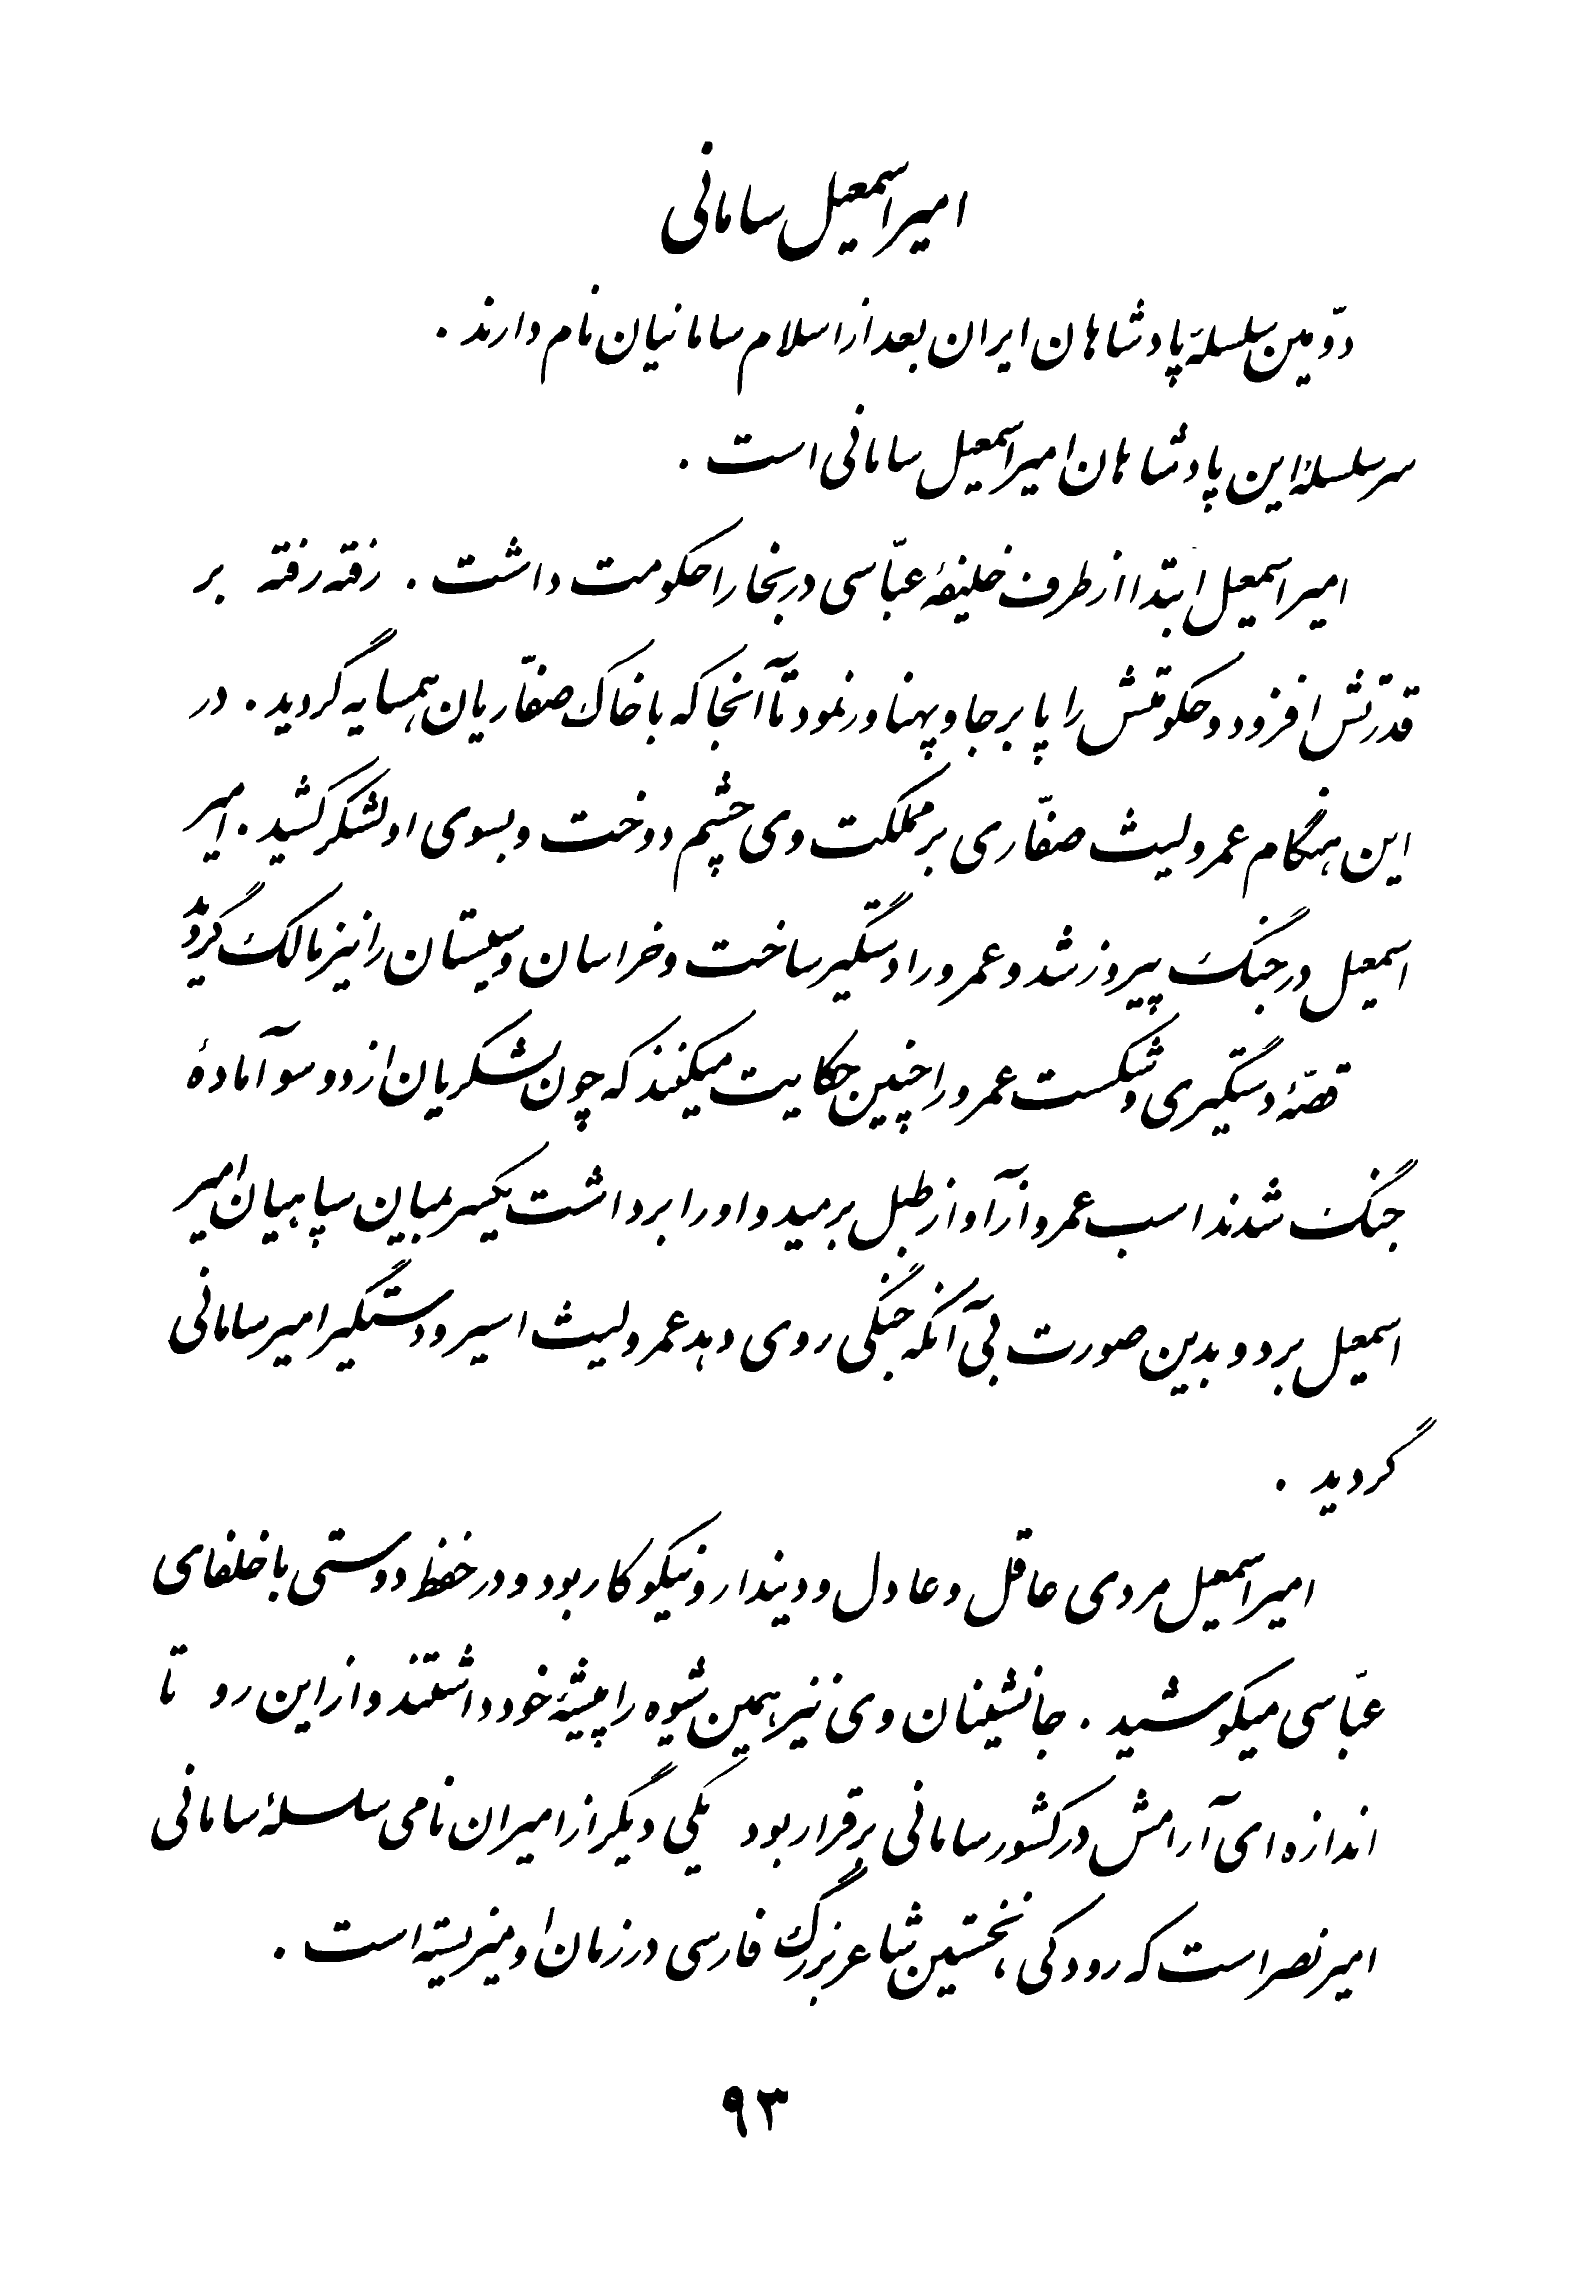 امیر اسمعیل سامانی
دوّمین سلسلهٔ پادشاهان ایران بعد از اسلام سامانیان نام دارند .
سر سلسلهٔ این پادشاهان امیر اسمعیل سامانی است .
امیر اسمعیل ابتدا از طرف خلیفهٔ عبّاسی در بخارا حکومت داشت . رفته رفته بر
قدرتش افزود و حکومتش را پا بر جا و پهناور نمود تا آنجا که با خاک صفّاریان همسایه گردید . در
این هنگام عمرو لیث صفّاری بر مملکت وی چشم دوخت و بسوی او لشکر کشید . امیر
اسمعیل در جنگ پیروز شد و عمرو را دستگیر ساخت و خراسان و سیستان را نیز مالک گردید
قصّهٔ دستگیری و شکست عمرو را چنین حکایت میکنند که چون لشکریان از دو سو آمادهٔ
جنگ شدند اسب عمرو از آواز طبل برمید و او را برداشت یکسر بمیان سپاهیان امیر
اسمعیل برد و بدین صورت بی آنکه جنگی روی دهد عمرو لیث اسیر و دستگیر امیر سامانی
گردید .
امیر اسمعیل مردی عاقل و عادل و دیندار و نیکوکار بود و در حفظ دوستی با خلفای
عبّاسی میکوشید . جانشینان وی نیز همین شیوه را پیشهٔ خود داشتند و از این رو تا
اندازه ای آرامش در کشور سامانی برقرار بود یکی دیگر از امیران نامی سلسلهٔ سامانی
امیر نصر است که رودکی ، نخستین شاعر بزرگ فارسی در زمان او میزیسته است .
۹۳